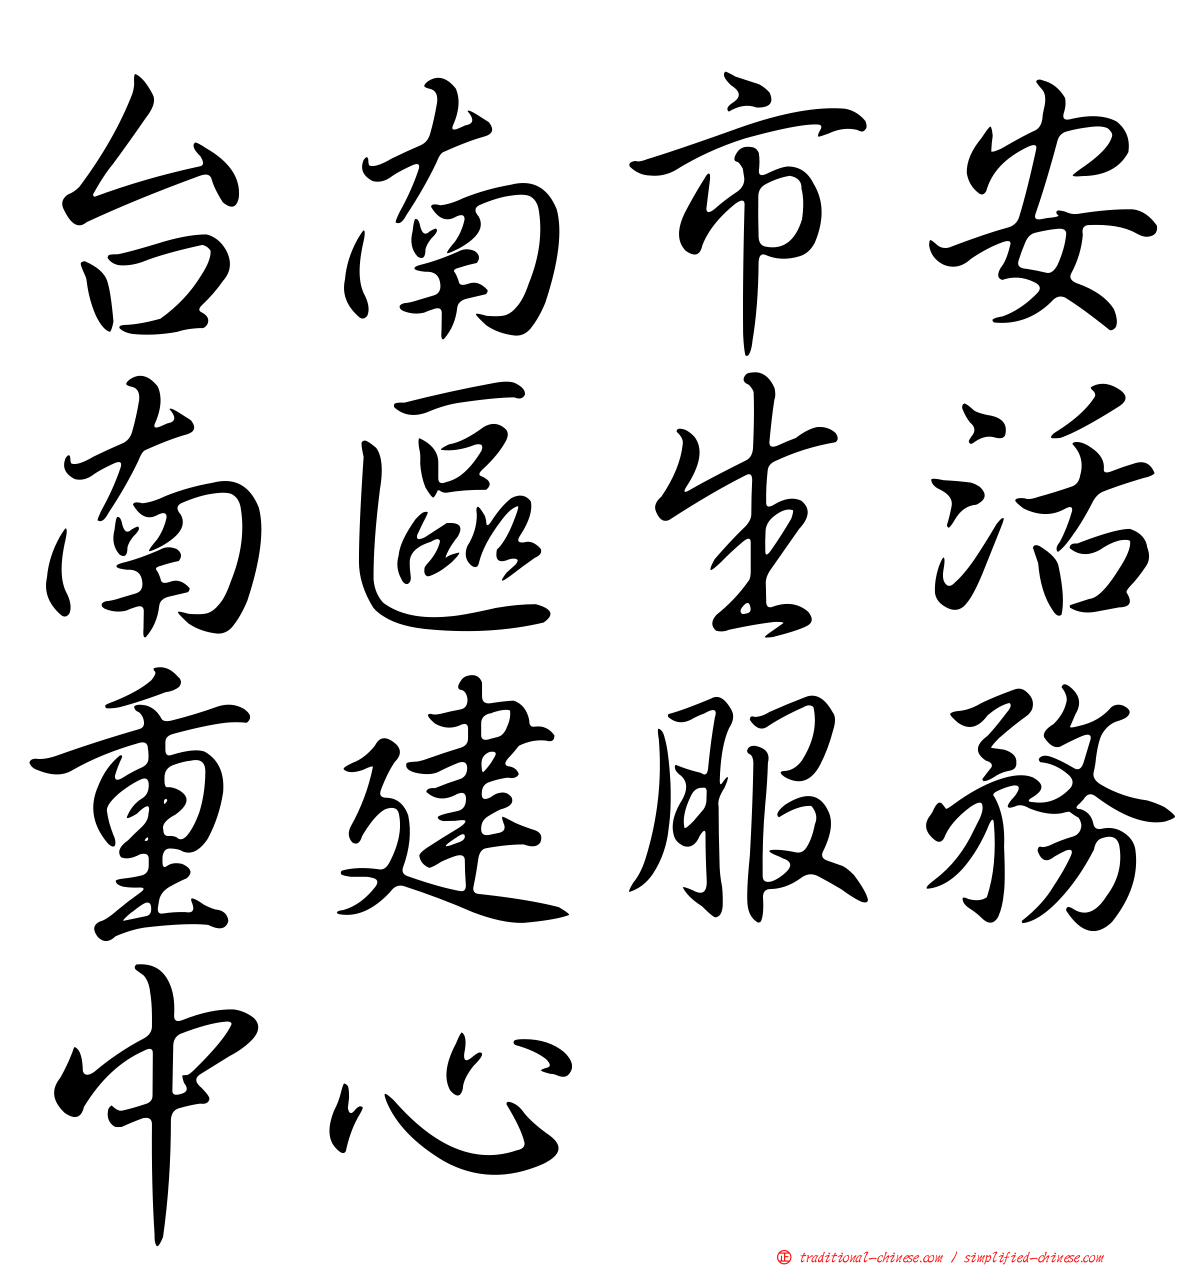 台南市安
南區生活
重建服務
中心
正 traditional-chinese.com / simplified-chinese.com